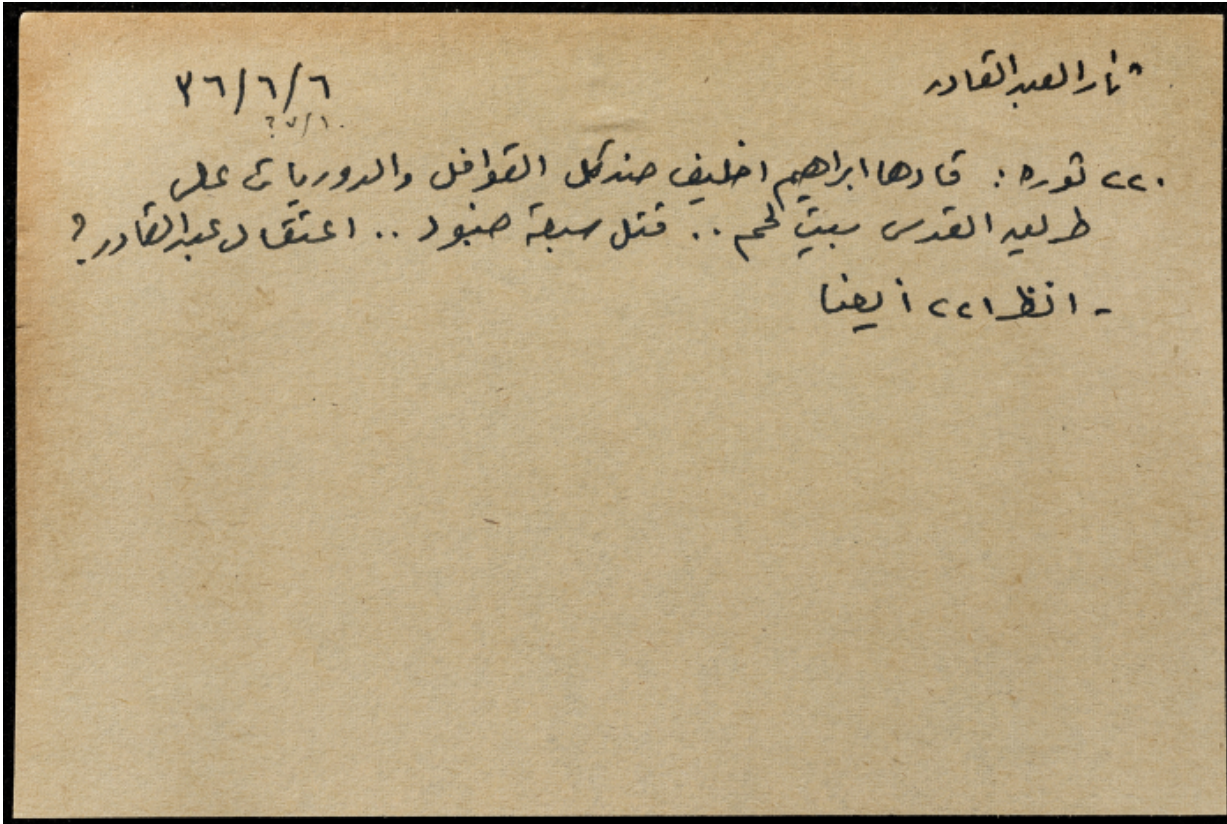 ثار العبد القادر
٣٦/٦/٦
١٠/٧؟
٢٢٠ ثوره : قادها ابراهيم اخليف ضد كل القوافل والدوريات على
طريق القدس بيت لحم .. قتل سبعة جنود .. اعتقال عبد القادر ؟
- انظر ٢٢١ أيضا